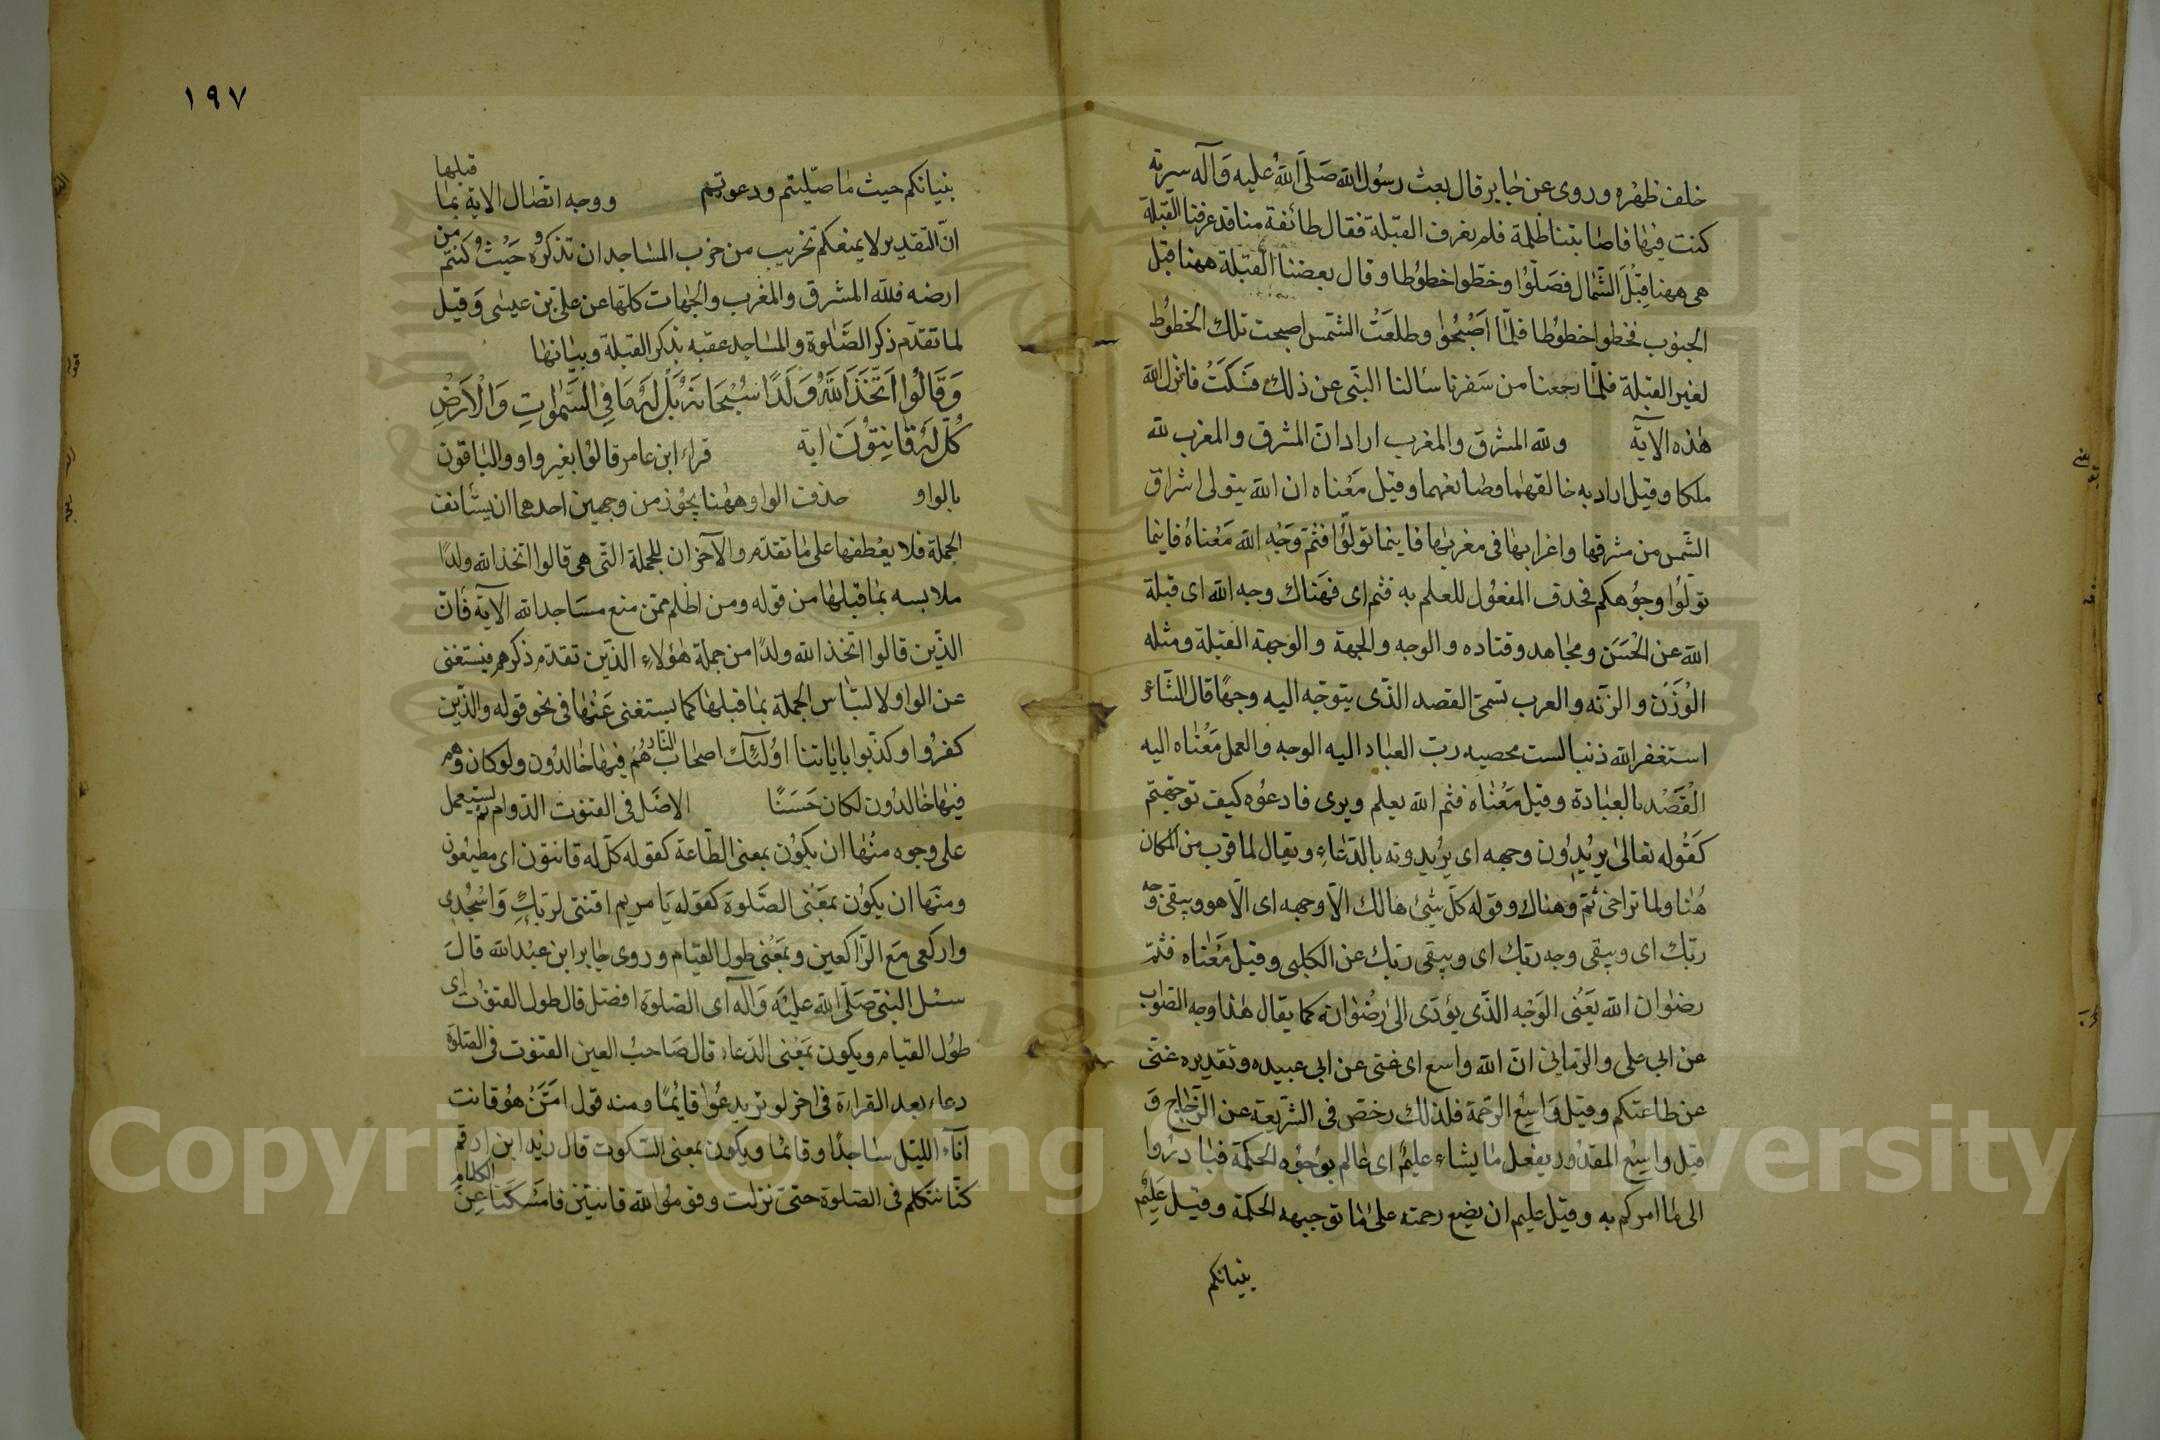 خلف ظهره وروى عن جابر قال بعث رسول الله صلى الله عليه وآله سرية
كنت فيها فاصابتنا ظلمة فلم نعرف القبلة فقال طائفة منا قد عرفنا القبلة
هى ههنا قِبَل الشمال فصلّوا وخطّوا خطوطا وقال بعضنا القبلة ههنا قبل
الجنوب فخطوا خطوطا فلمّا اصبحوا وطلعت الشمس اصبحت تلك الخطوط
لغير القبلة فلمّا رجعنا من سفرنا سألنا النبى عن ذلك فسكت فانزل الله
هذه الآية ولله المشرق والمغرب اراد ان المشرق والمغرب لله
ملكا وقيل اراد به خالقهما وصانعهما وقيل معناه ان الله يتولى اشراق
الشمس من مشرقها واغرابها فى مغربها فاينما تولّوا فثم وجه الله معناه فاينما
تولّوا وجوهكم فحذف المفعول للعلم به فثم اى فهناك وجه الله اى قبلة
الله عن الحسن ومجاهد وقتاده والوجه والجهة والوجهة القبلة ومثله
الوزن والزنه والعرب تسمى القصد الذى يتوجه اليه وجها قال الشاعر
استغفر الله ذنبا لست محصيه رب العباد اليه الوجه والعمل معناه اليه
القصد بالعبادة وقيل معناه فثم الله يعلم ويرى فادعوه كيف توجهتم
كقوله تعالى يريدون وجهه اى يريدونه بالدعاء ويقال لما قرب من المكان
هنا ولما تراخى ثم وهناك وقوله كل شئ هالك الّا وجهه اى الّا هو ويبقى وجه
ربّك اى ويبقى وجه ربّك اى ويبقى ربّك عن الكلبى وقيل معناه فثمّ
رضوان الله يعنى الوجه الذى يؤدى الى رضوانه كما يقال هذا وجه الصواب
عن ابى على والرمانى انّ الله واسع اى غنى عن ابى عبيده وتقديره غنى
عن طاعتكم وقيل واسع الرحمة فلذلك رخص فى الشريعة عن الزجاج و
قيل واسع المقدور يفعل ما يشاء عليم اى عالم بوجوه الحكمة فبادروا
الى ما امركم به وقيل عليم ان يضع رحمته على ما توجبه الحكمة وقيل عليم
بنياتكم
١٩٧
بنياتكم حيث ما صلّيتم ودعوتم ووجه اتصال الاية بما قبلها
انّ التقدير لا يمنعكم تخريب من خرب المساجد ان تذكروه حيث كنتم من
ارضه فلله المشرق والمغرب والجهات كلها عن على بن عيسى وقيل
لما تقدّم ذكر الصلوة والمساجد عقبه بذكر القبلة وبيانها
وَقَالُوا اتَّخَذَ اللَّهُ وَلَدًا سُبْحَانَهُ بَلْ لَهُ مَا فِي السَّمٰواتِ وَالْأَرْضِ
كُلٌّ لَهُ قَانِتُونَ اية قراء ابن عامر قالوا بغير واو والباقون
بالواو حذف الواو ههنا يجوز من وجهين احدهما ان يستأنف
الجملة فلا يعطفها على ما تقدّم والآخر ان للجملة التى هى قالوا اتخذ الله ولدا
ملابسه بما قبلها من قوله ومن اظلم ممن منع مساجد الله الآية فانّ
الذين قالوا اتخذ الله ولدا من جملة هؤلاء الذين تقدّم ذكرهم فيستغنى
عن الواو لالتباس الجملة بما قبلها كما يستغنى عنها فى نحو قوله والذين
كفروا وكذبوا باياتنا اولئك اصحاب النار هم فيها خالدون ولو كان وهم
فيها خالدون لكان حسنًا الاصل فى القنوت الدوام ثم يستعمل
على وجوه منها ان يكون بمعنى الطاعة كقوله كل له قانتون اى مطيعون
ومنها ان يكون بمعنى الصلوة كقوله يا مريم اقنتى لربك واسجدى
واركعى مع الراكعين وبمعنى طول القيام وروى جابر ابن عبد الله قال
سئل النبى صلى الله عليه وآله اى الصلوة افضل قال طول القنوت اى
طول القيام ويكون بمعنى الدعاء قال صاحب العين القنوت فى الصلوة
دعاء بعد القراءة فى اخر لوتر يدعوا قائما ومنه قول امّن هو قانت
آناء الليل ساجدًا وقائما ويكون بمعنى السكوت قال زيد ابن ارقم
كنّا نتكلم فى الصلوة حتى نزلت وقوموا لله قانتين فامسكنا عن الكلام
Copyright © King Saud University